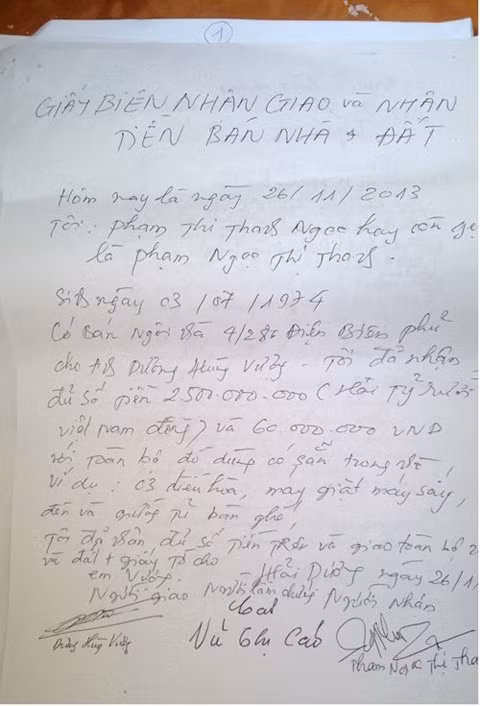 1
GIẤY BIÊN NHẬN GIAO và NHẬN
TIỀN BÁN NHÀ & ĐẤT
Hôm nay là ngày 26/11/2013
Tôi: phạm Thị Thanh Ngọc hay còn gọ
là phạm Ngọc Thị Thanh.
Sinh ngày 03/07/1974
Có bán ngôi nhà 4/286 Điện Biên phủ
cho anh Dương Hùng Vương. Tôi đã nhận
đủ số tiền 2500.000.000 (Hai Tỷ rưỡi
việt nam đồng) và 60.000.000 VND
với toàn bộ đồ dùng có sẵn trong nhà,
ví dụ: 03 điều hòa, máy giặt máy sấy,
đèn và giường tủ bàn ghế,
Tôi đã nhận đủ số tiền trên và giao toàn bộ
và đất + giấy tờ cho
em Vương. Hải Dương ngày 26/1
Người giao Người làm chứng Người nhận
Vũ Thị Cao
Dương Hùng Vương
Phạm Ngọc Thị Tha